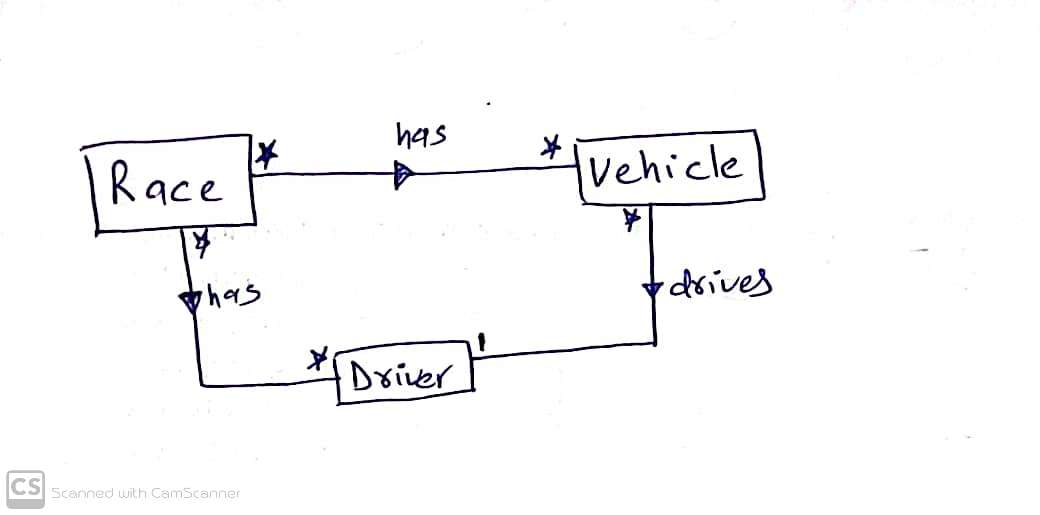 has
* *
Race Vehicle
* *
has drives
* 1
Driver
CS Scanned with CamScanner